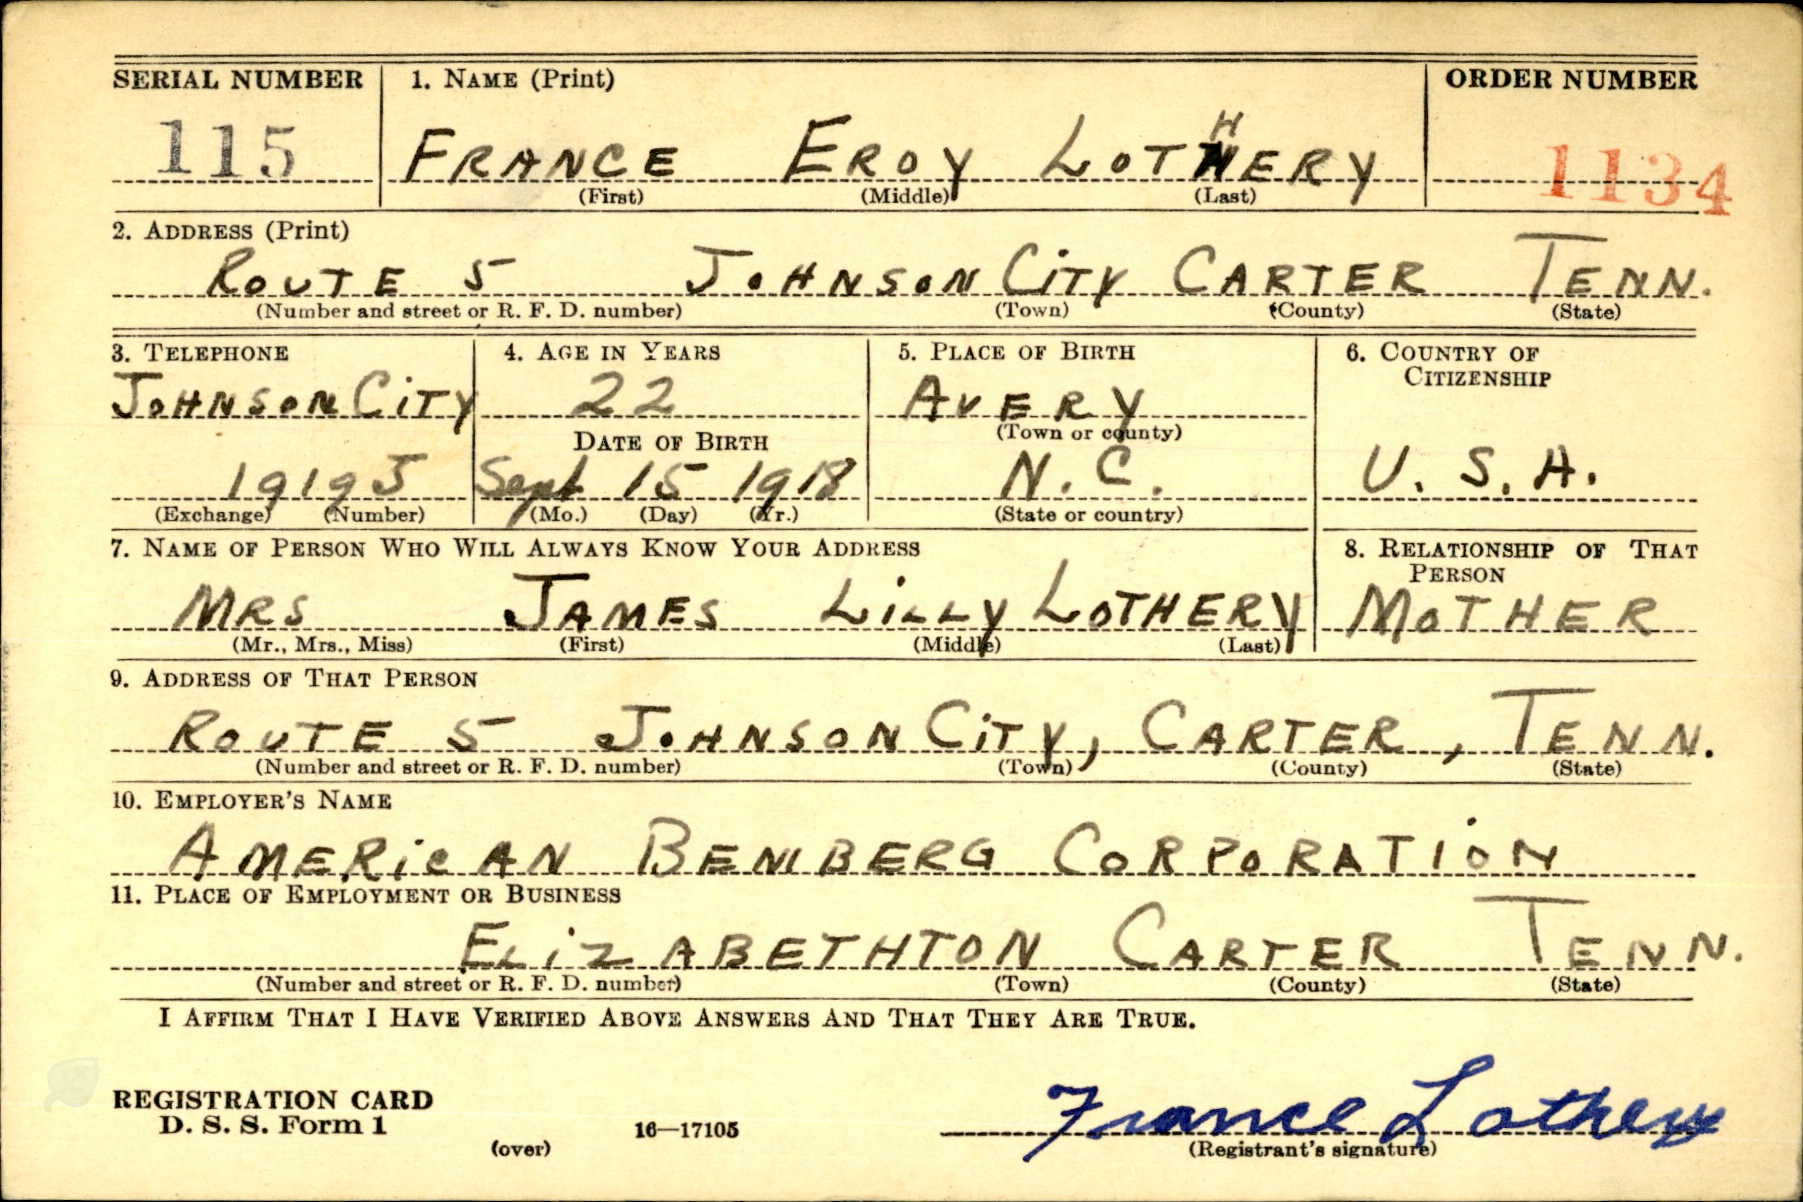 SERIAL NUMBER 1. NAME (Print) ORDER NUMBER
115 FRANCE EROY LOTHERY 1134
(First) (Middle) (Last)
2. ADDRESS (Print)
ROUTE 5 JOHNSON CITY CARTER TENN.
(Number and street or R. F. D. number) (Town) (County) (State)
3. TELEPHONE 4. AGE IN YEARS 5. PLACE OF BIRTH 6. COUNTRY OF CITIZENSHIP
JOHNSON CITY 22 AVERY
DATE OF BIRTH (Town or county)
Sept 15 1918 N. C. U. S. A.
(Exchange) (Number) (Mo.) (Day) (Yr.) (State or country)
7. NAME OF PERSON WHO WILL ALWAYS KNOW YOUR ADDRESS 8. RELATIONSHIP OF THAT PERSON
MRS JAMES LILLY LOTHERY MOTHER
(Mr., Mrs., Miss) (First) (Middle) (Last)
9. ADDRESS OF THAT PERSON
ROUTE 5 JOHNSON CITY, CARTER, TENN.
(Number and street or R. F. D. number) (Town) (County) (State)
10. EMPLOYER'S NAME
AMERICAN BEMBERG CORPORATION
11. PLACE OF EMPLOYMENT OR BUSINESS
ELIZABETHTON CARTER TENN.
(Number and street or R. F. D. number) (Town) (County) (State)
I AFFIRM THAT I HAVE VERIFIED ABOVE ANSWERS AND THAT THEY ARE TRUE.
REGISTRATION CARD
D. S. S. Form 1
(over) 16—17105
France Lothery
(Registrant's signature)